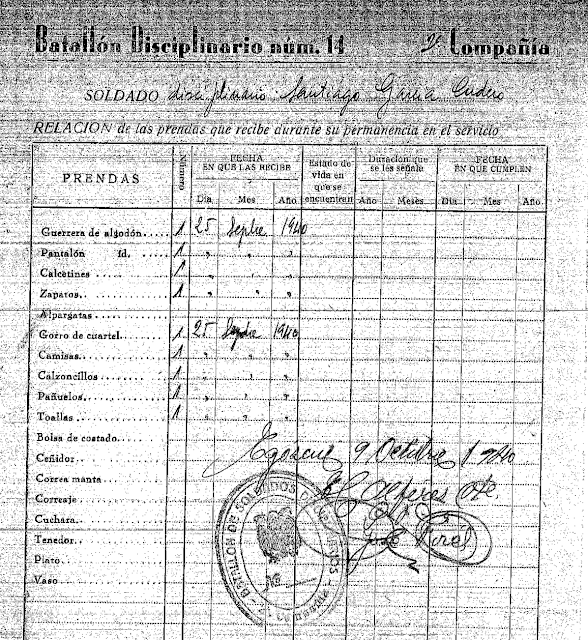 Batallón Disciplinario núm. 14 2ª Compañía
SOLDADO disciplinario Santiago García
RELACION de las prendas que recibe durante su permanencia en el servicio
PRENDAS Número FECHA EN QUE LAS RECIBE Estado de vida en que se encuentran Duración que se les señala FECHA EN QUE CUMPLEN
Día Mes Año Año Meses Día Mes Año
Guerrera de algodón..... 1 25 Sepbre 1940
Pantalón íd. ..... 1 " " "
Calcetines ........ 1 " " "
Zapatos.......... 1 " " "
Alpargatas ........
Gorro de cuartel..... 1 25 Sepbre 1940
Camisas.......... 1 " " "
Calzoncillos ........ 1 " " "
Pañuelos.......... 1 " " "
Toallas .......... 1 " " "
Bolsa de costado.....
Ceñidor..........
Correa manta .......
Correaje ..........
Cuchara..........
Tenedor..........
Plato..........
Vaso ..........
9 Octubre 1940
El Alferez
BATALLON DE SOLDADOS